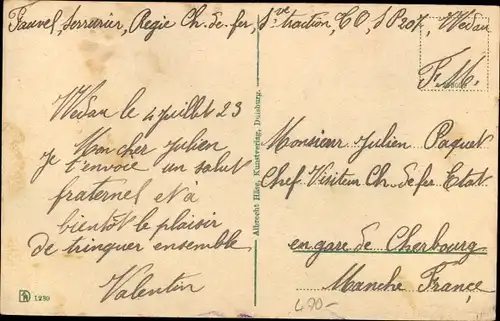 Fauvel, Serrurier, Régie Ch. de fer, Sve traction, CO, SP 207, Wedau
F. M.
Wedau le 4 juillet 23
Mon cher Julien
Je t'envoie un salut
fraternel et à
bientôt le plaisir
de trinquer ensemble
Valentin
Albrecht Häce, Kunstverlag, Duisburg.
Monsieur Julien Paquet
Chef Visiteur Ch. de fer Etat
en gare de Cherbourg
Manche France
1230
480-